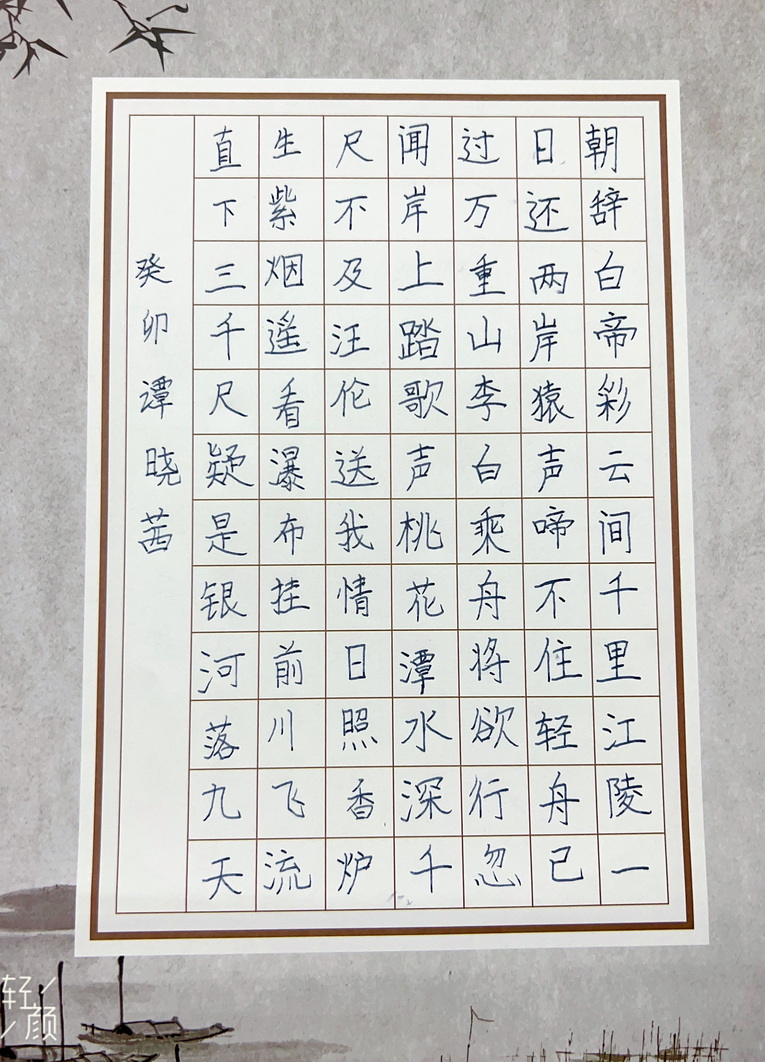 朝辞白帝彩云间千里江陵一
日还两岸猿声啼不住轻舟已
过万重山李白乘舟将欲行忽
闻岸上踏歌声桃花潭水深千
尺不及汪伦送我情日照香炉
生紫烟遥看瀑布挂前川飞流
直下三千尺疑是银河落九天
癸卯谭晓茜
轻颜